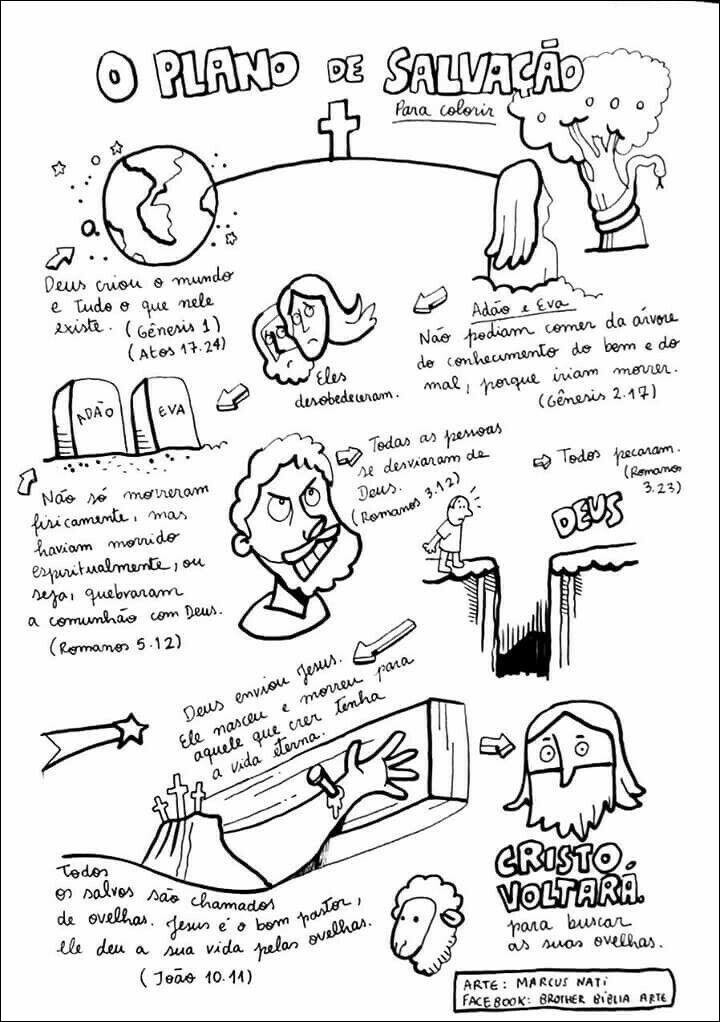 O PLANO DE SALVAÇÃO
Para colorir
Deus criou o mundo
e Tudo o que nele
existe. (Gênesis 1)
(Atos 17.24)
Adão e Eva
Não podiam comer da árvore
do conhecimento do bem e do
mal, porque iriam morrer.
(Gênesis 2.17)
Eles
desobedeceram.
ADÃO
EVA
Não só morreram
fisicamente, mas
haviam morrido
espiritualmente, ou
seja, quebraram
a comunhão com Deus.
(Romanos 5.12)
Todas as pessoas
se desviaram de
Deus.
(Romanos 3.12)
Todos pecaram.
(Romanos
3.23)
DEUS
Deus enviou Jesus.
Ele nasceu e morreu para
aquele que crer tenha
a vida eterna.
CRISTO
VOLTARÁ.
para buscar
as suas ovelhas.
Todos
os salvos são chamados
de ovelhas. Jesus é o bom pastor,
ele deu a sua vida pelas ovelhas.
(João 10.11)
ARTE: MARCUS NATI
FACEBOOK: BROTHER BÍBLIA ARTE